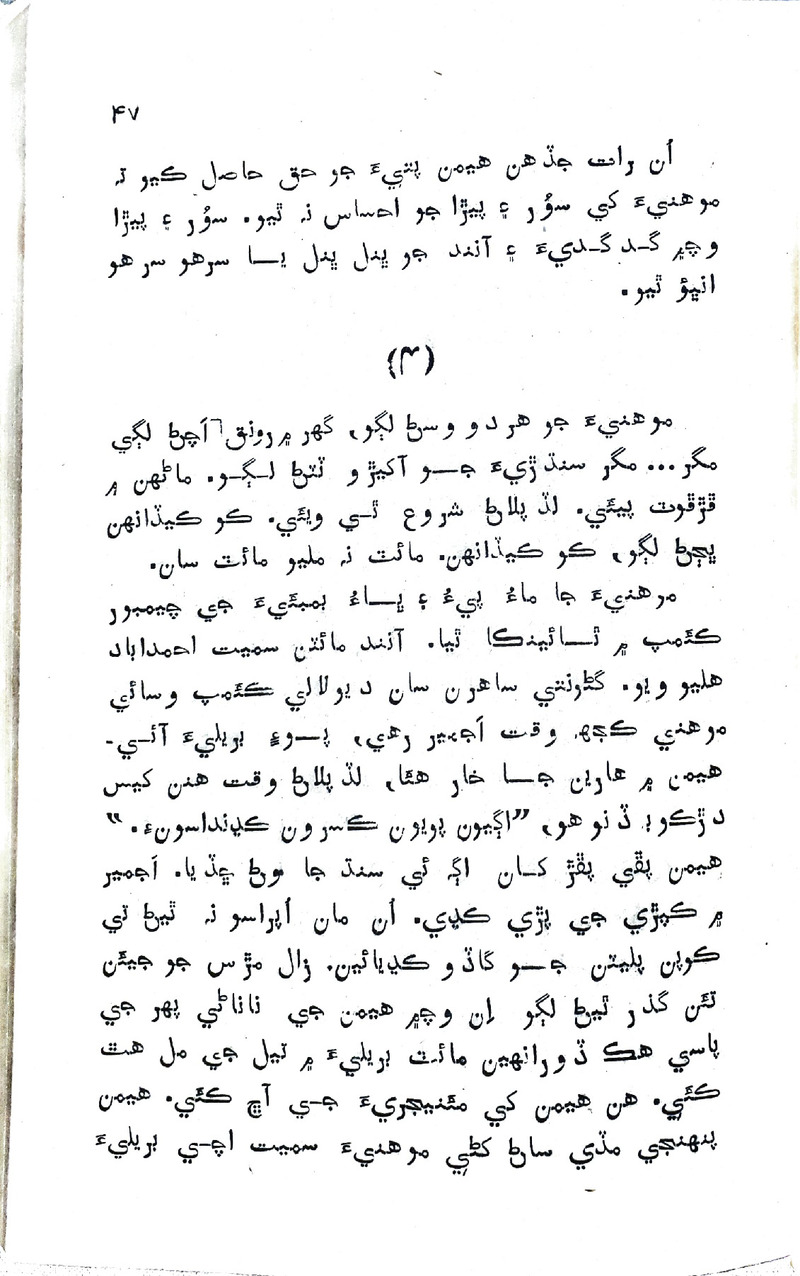 ۴۷
اُن رات جڏهن هيمن پتيءَ جو حق حاصل ڪيو تہ
موهنيءَ کي سوُر ۽ پيڙا جو احساس نہ ٿيو. سوُر ۽ پيڙا
وچ۾ گـد گـديءَ ۽ آنند جو ڀنل ڀنل يـــا سرهو سرهو
انڀؤ ٿيو.
(۴)
موهنيءَ جو هردو وسڻ لڳو، گهر ۾ رونق اَچڻ لڳي
مگر... مگر سنڌڙيءَ جـــو آکيڙو ٽٽڻ لـڳـو. ماڻهن ۾
ڦڙڦوٽ پيئي. لڏپلاڻ شروع ٿـي ويئي. ڪو ڪيڏانهن
ڀڄڻ لڳو، ڪو ڪيڏانهن. مائٽ نہ مليو مائٽ سان.
موهنيءَ جا ماءُ پيءُ ۽ ڀـــاءُ بمبئيءَ جي چيمبور
ڪئمپ ۾ ٿـــائينڪا ٿيا. آنند مائٽن سميت احمداباد
هليو ويو. گڻونتي ساهرن سان ديولالي ڪئمپ وسائي
موهني ڪجهہ وقت اَجمير رهي، پـــوءِ بريليءَ آئـي-
هيمن ۾ هارين جـــا خار هئا، لڏپلاڻ وقت هنن کيس
دڙڪو بہ ڏنو هو، ”اڳيون پويون ڪسرون ڪڍنداسونءِ.“
هيمن پڦي پڦڙ کـان اڳہ ئي سنڌ جا ٻوٽ ڇڏيا. اَجمير
۾ ڪپڙي جي پڙي ڪڍي. اُن مان اُپراسو نہ ٿيڻ تي
ڪوپن پليٽن جـــو گاڏو ڪڍيائين. زال مڙس جو جيئن
تئن گذر ٿيڻ لڳو اِن وچ۾ هيمن جي ناناڻي پهر جي
پاسي هڪ ڏورانهين مائٽ بريليءَ ۾ تيل جي مل هٿ
ڪئي. هن هيمن کي مئنيجريءَ جـي آڇ ڪئي. هيمن
پنهنجي مڏي ساڻ کڻي موهنيءَ سميت اچـي بريليءَ